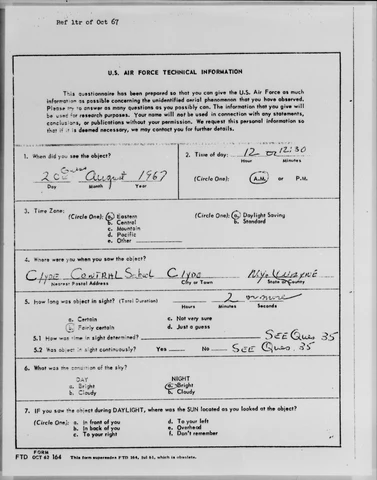 Ref ltr of Oct 67
U.S. AIR FORCE TECHNICAL INFORMATION
This questionnaire has been prepared so that you can give the U.S. Air Force as much
information as possible concerning the unidentified aerial phenomenon that you have observed.
Please try to answer as many questions as you possibly can. The information that you give
will be used for research purposes. Your name will not be used in connection with any statements,
conclusions, or publications without your permission. We request this personal information
so that if it is deemed necessary, we may contact you for further details.
1. When did you see the object?
August 1967
Day Month Year
2. Time of day: 12 or 12:30
Hour Minutes
(Circle One): A.M. or P.M.
3. Time Zone:
(Circle One): a. Eastern
b. Central
c. Mountain
d. Pacific
e. Other
(Circle One): a. Daylight Saving
b. Standard
4. Where were you when you saw the object?
Clyde Central School Clyde N.Y. Wayne
Nearest Postal Address City or Town State or Country
5. How long was object in sight? (Total Duration) 2 or more
Hours Minutes Seconds
a. Certain c. Not very sure
b. Fairly certain d. Just a guess
5.1 How was time in sight determined? SEE Ques 35
5.2 Was object in sight continuously? Yes No SEE Ques 35
6. What was the condition of the sky?
DAY NIGHT
a. Bright a. Bright
b. Cloudy b. Cloudy
7. IF you saw the object during DAYLIGHT, where was the SUN located as you looked at the object?
(Circle One): a. In front of you d. To your left
b. In back of you e. Overhead
c. To your right f. Don't remember
FORM
FTD OCT 62 164 This form supersedes FTD 164, Jul 61, which is obsolete.